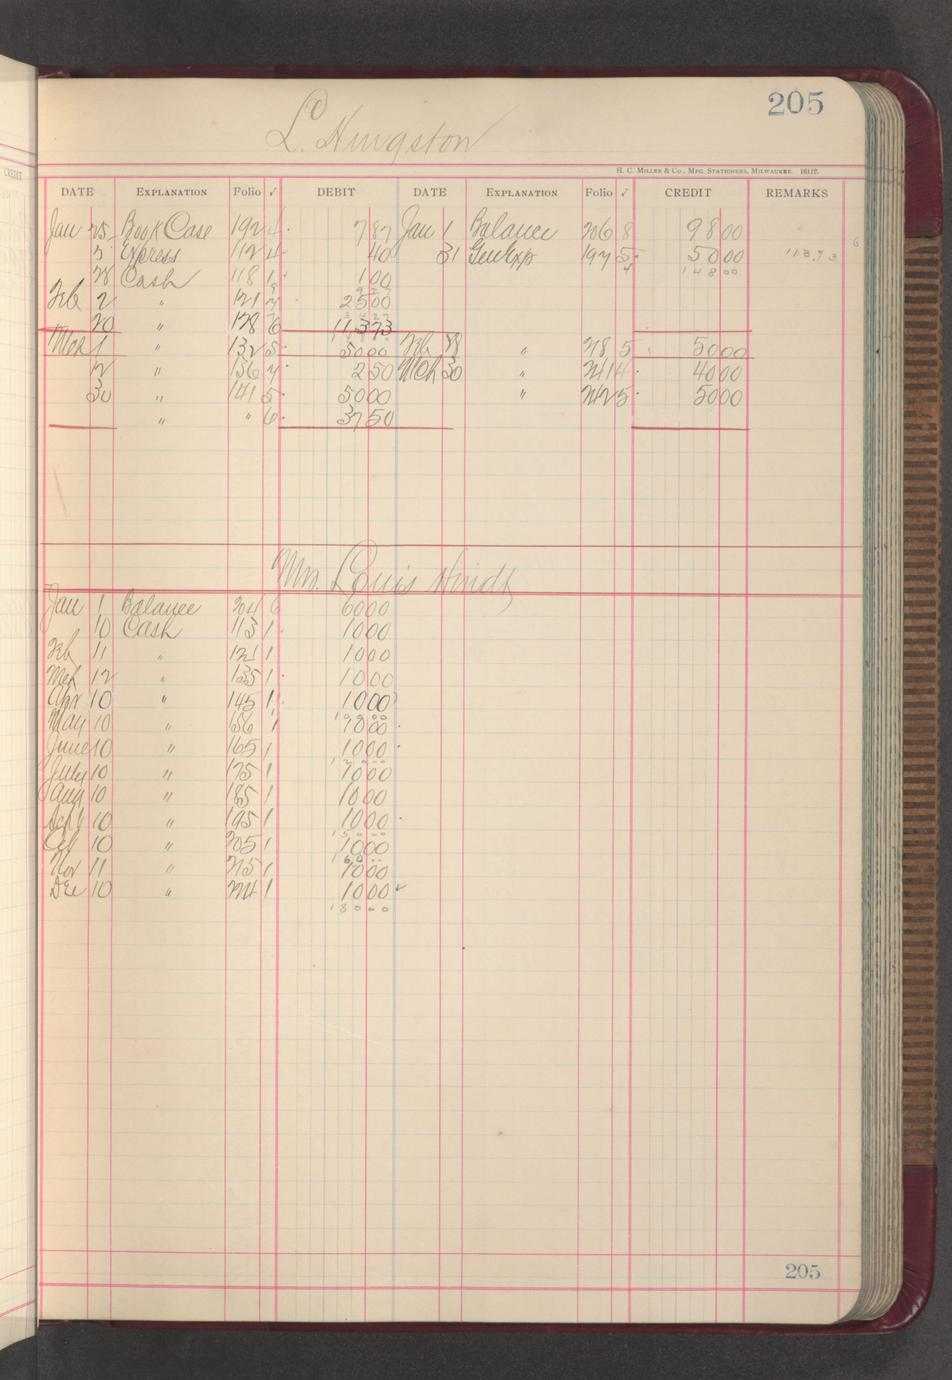 205
L. Hingston
H. C. Miller & Co., Mfg. Stationers, Milwaukee. 16112.
CREDIT
DATE EXPLANATION Folio ✓ DEBIT DATE EXPLANATION Folio ✓ CREDIT REMARKS
Jan 25 Book Case 192 4 7 87 Jan 1 Balance 206 8 98 00
5 Express 112 4 40 31 Gen Exp 197 5 50 00 113.73
28 Cash 118 1 1 00 148 00
Feb 2 " 121 7 25 00
20 " 128 6 113 73
Mch 1 " 132 5 50 00 Feb 28 " 218 5 50 00
12 " 136 7 2 50 Mch 30 " 241 4 40 00
30 " 141 5 50 00 " 242 5 50 00
" " 6 37 50
Mrs. Louis Hindt
Jan 1 Balance 204 6 60 00
10 Cash 113 1 10 00
Feb 11 " 121 1 10 00
Mch 12 " 135 1 10 00
Apr 10 " 145 1 10 00
100 00
May 10 " 156 1 10 00
June 10 " 165 1 10 00
July 10 " 175 1 10 00
Aug 10 " 185 1 10 00
Sept 10 " 195 1 10 00
150 00
Oct 10 " 205 1 10 00
160 00
Nov 11 " 215 1 10 00
Dec 10 " 224 1 10 00 ✓
180 00
205